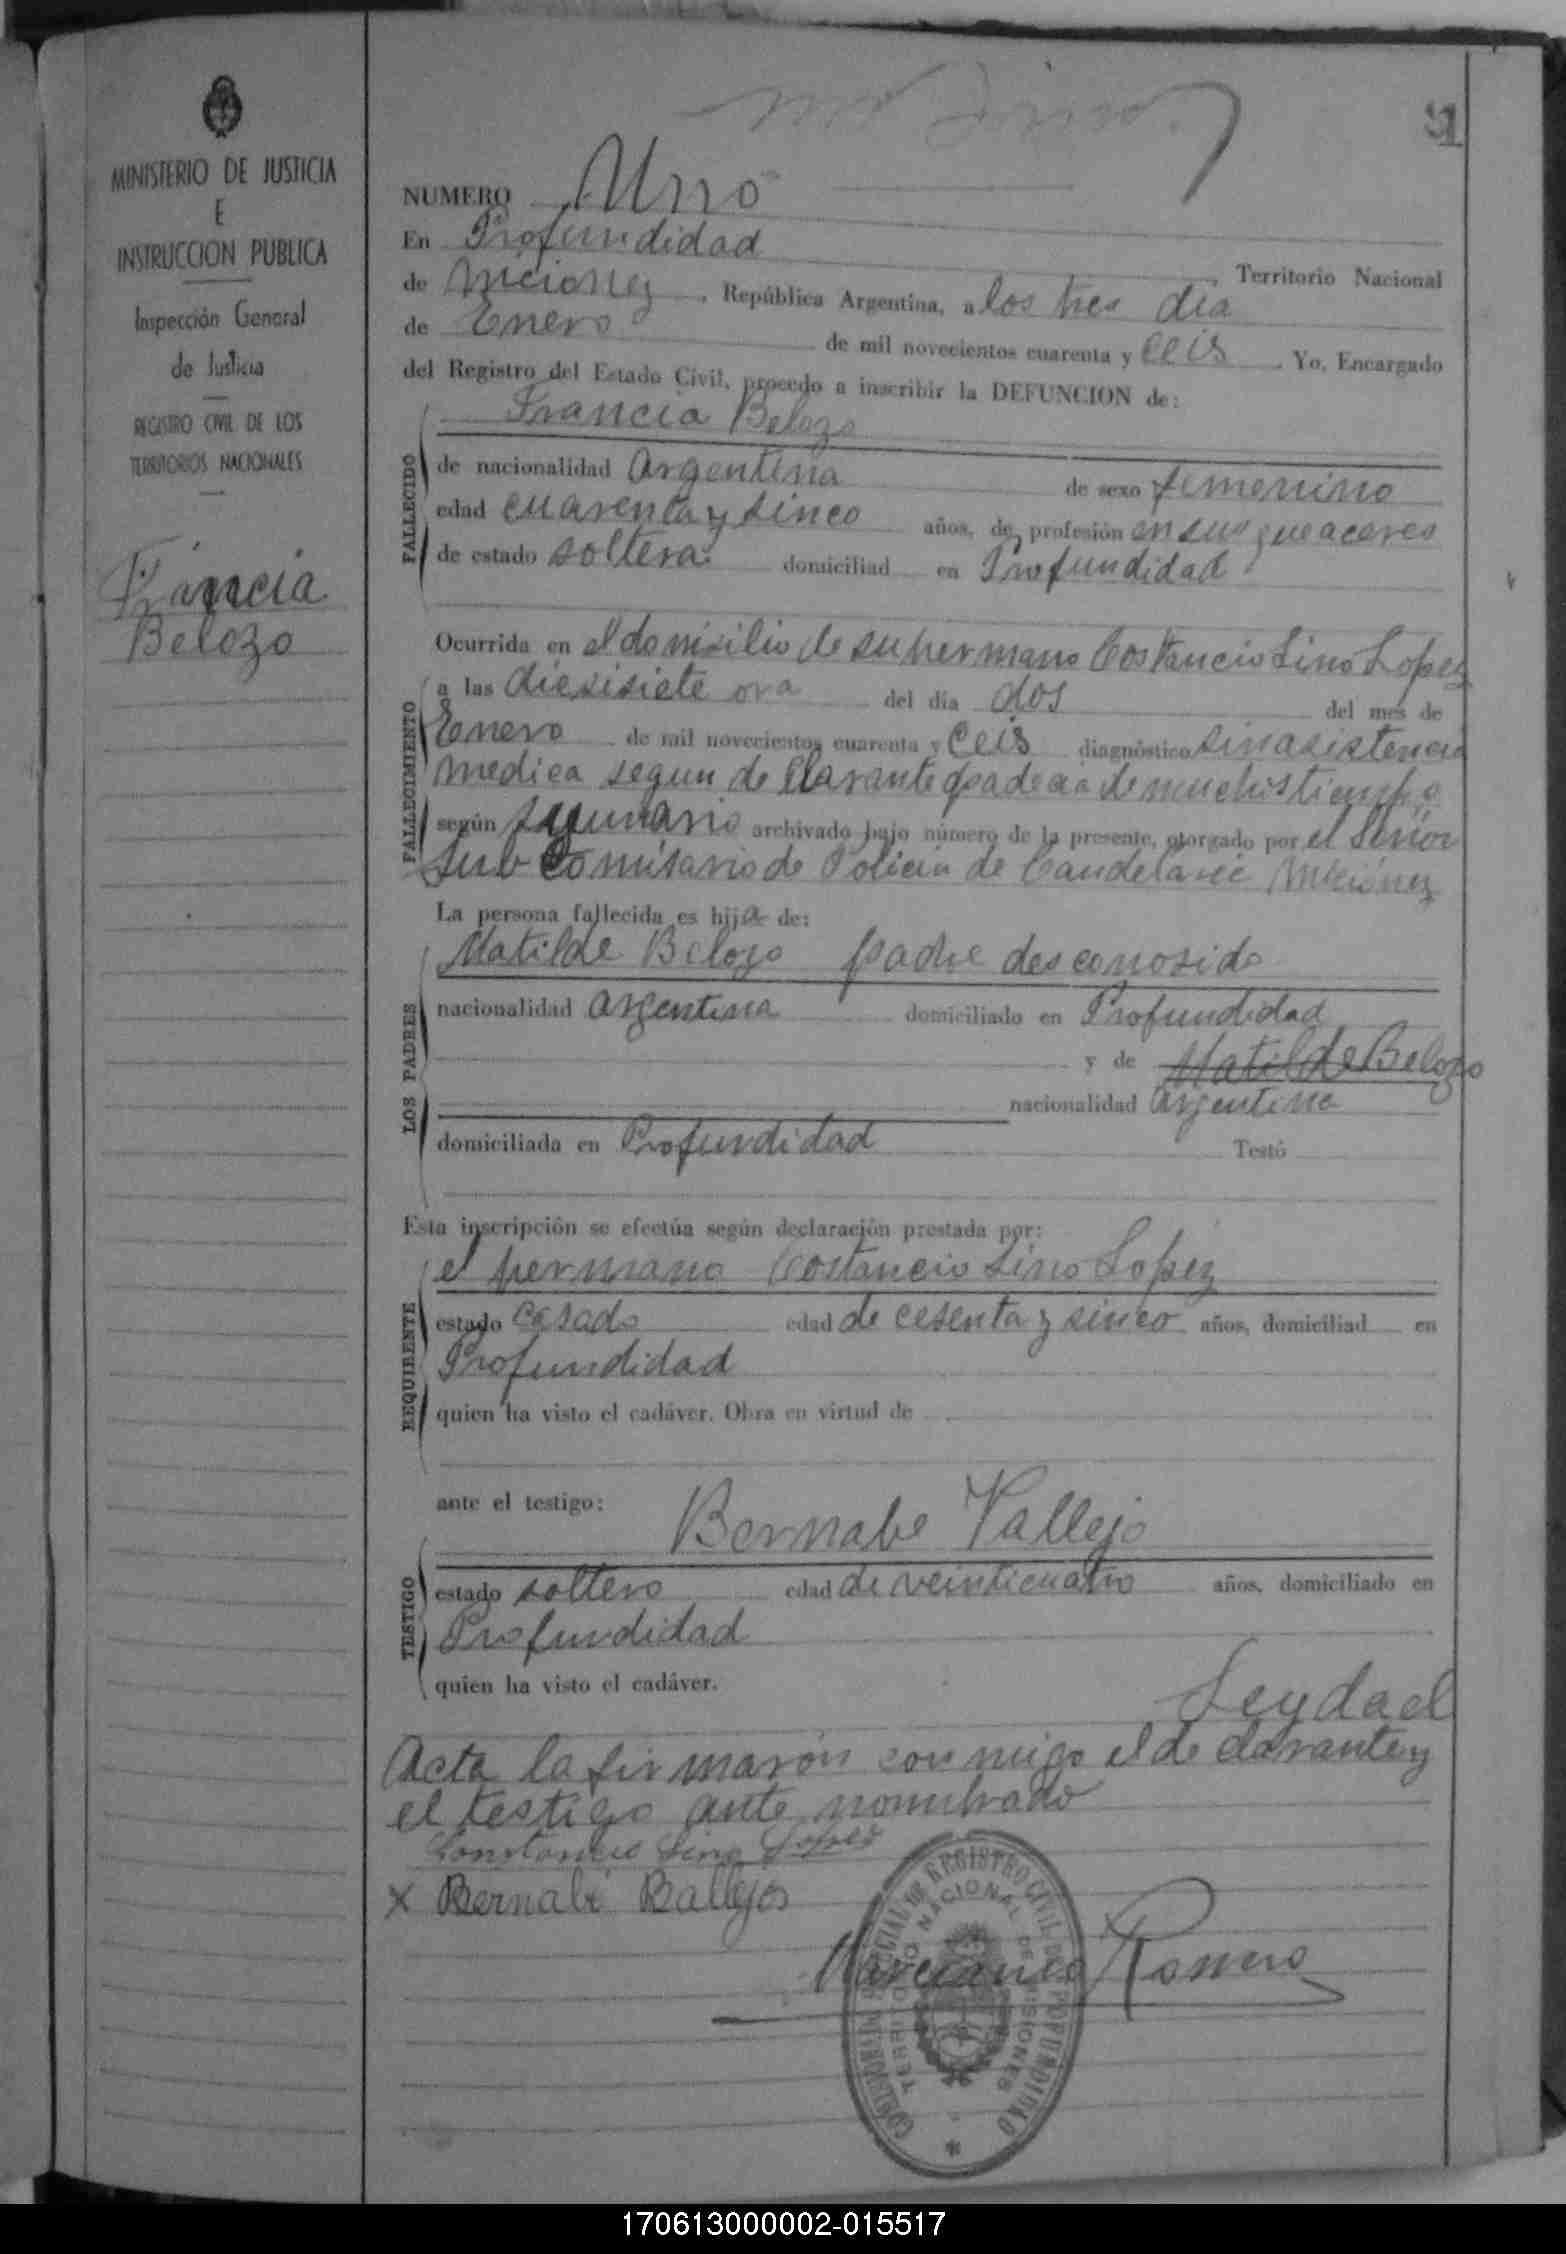 MINISTERIO DE JUSTICIA
E
INSTRUCCION PUBLICA
Inspección General
de Justicia
REGISTRO CIVIL DE LOS
TERRITORIOS NACIONALES
Francia
Belozo
NUMERO Uno
En Profundidad Territorio Nacional
de Micionez, República Argentina, a los tres dia
de Enero de mil novecientos cuarenta y Ceis. Yo, Encargado
del Registro del Estado Civil, procedo a inscribir la DEFUNCION de:
Francia Belozo
FALLECIDO
de nacionalidad Argentina de sexo femenino
edad cuarenta y sinco años, de profesión en sus queaceres
de estado soltera domiciliad en Profundidad
Ocurrida en el domisilio de su hermano Costancio Lino Lopez
FALLECIMIENTO
a las diesisiete ora del día dos del mes de
Enero de mil novecientos cuarenta y Ceis diagnóstico sinasistencia
medica segun de Clarante padecia de muchistiempo
según sumario archivado bajo número de la presente, otorgado por el Señor
Sub Comisario de Policia de Candelarie Micionez
La persona fallecida es hija de:
LOS PADRES
Matilde Belozo padre desconosido
nacionalidad Argentina domiciliado en Profundidad
y de Matilde Belozo
nacionalidad Argentina
domiciliada en Profundidad Testó
Esta inscripción se efectúa según declaración prestada por:
REQUIRENTE
el hermano Costancio Lino Lopez
estado casado edad de cesenta y sinco años, domiciliad en
Profundidad
quien ha visto el cadáver. Obra en virtud de
ante el testigo:
Bernabe Vallejo
TESTIGO
estado soltero edad de veinticuatro años, domiciliado en
Profundidad
quien ha visto el cadáver.
Leyda el
Acta la firmarón conmigo el de clarante y
el testigo ante nombrado
Constancio Lino Lopez
x Bernabé Ballejos
Marciano Romero
REGISTRO CIVIL DE PROFUNDIDAD
TERRITORIO NACIONAL DE MISIONES
170613000002-015517